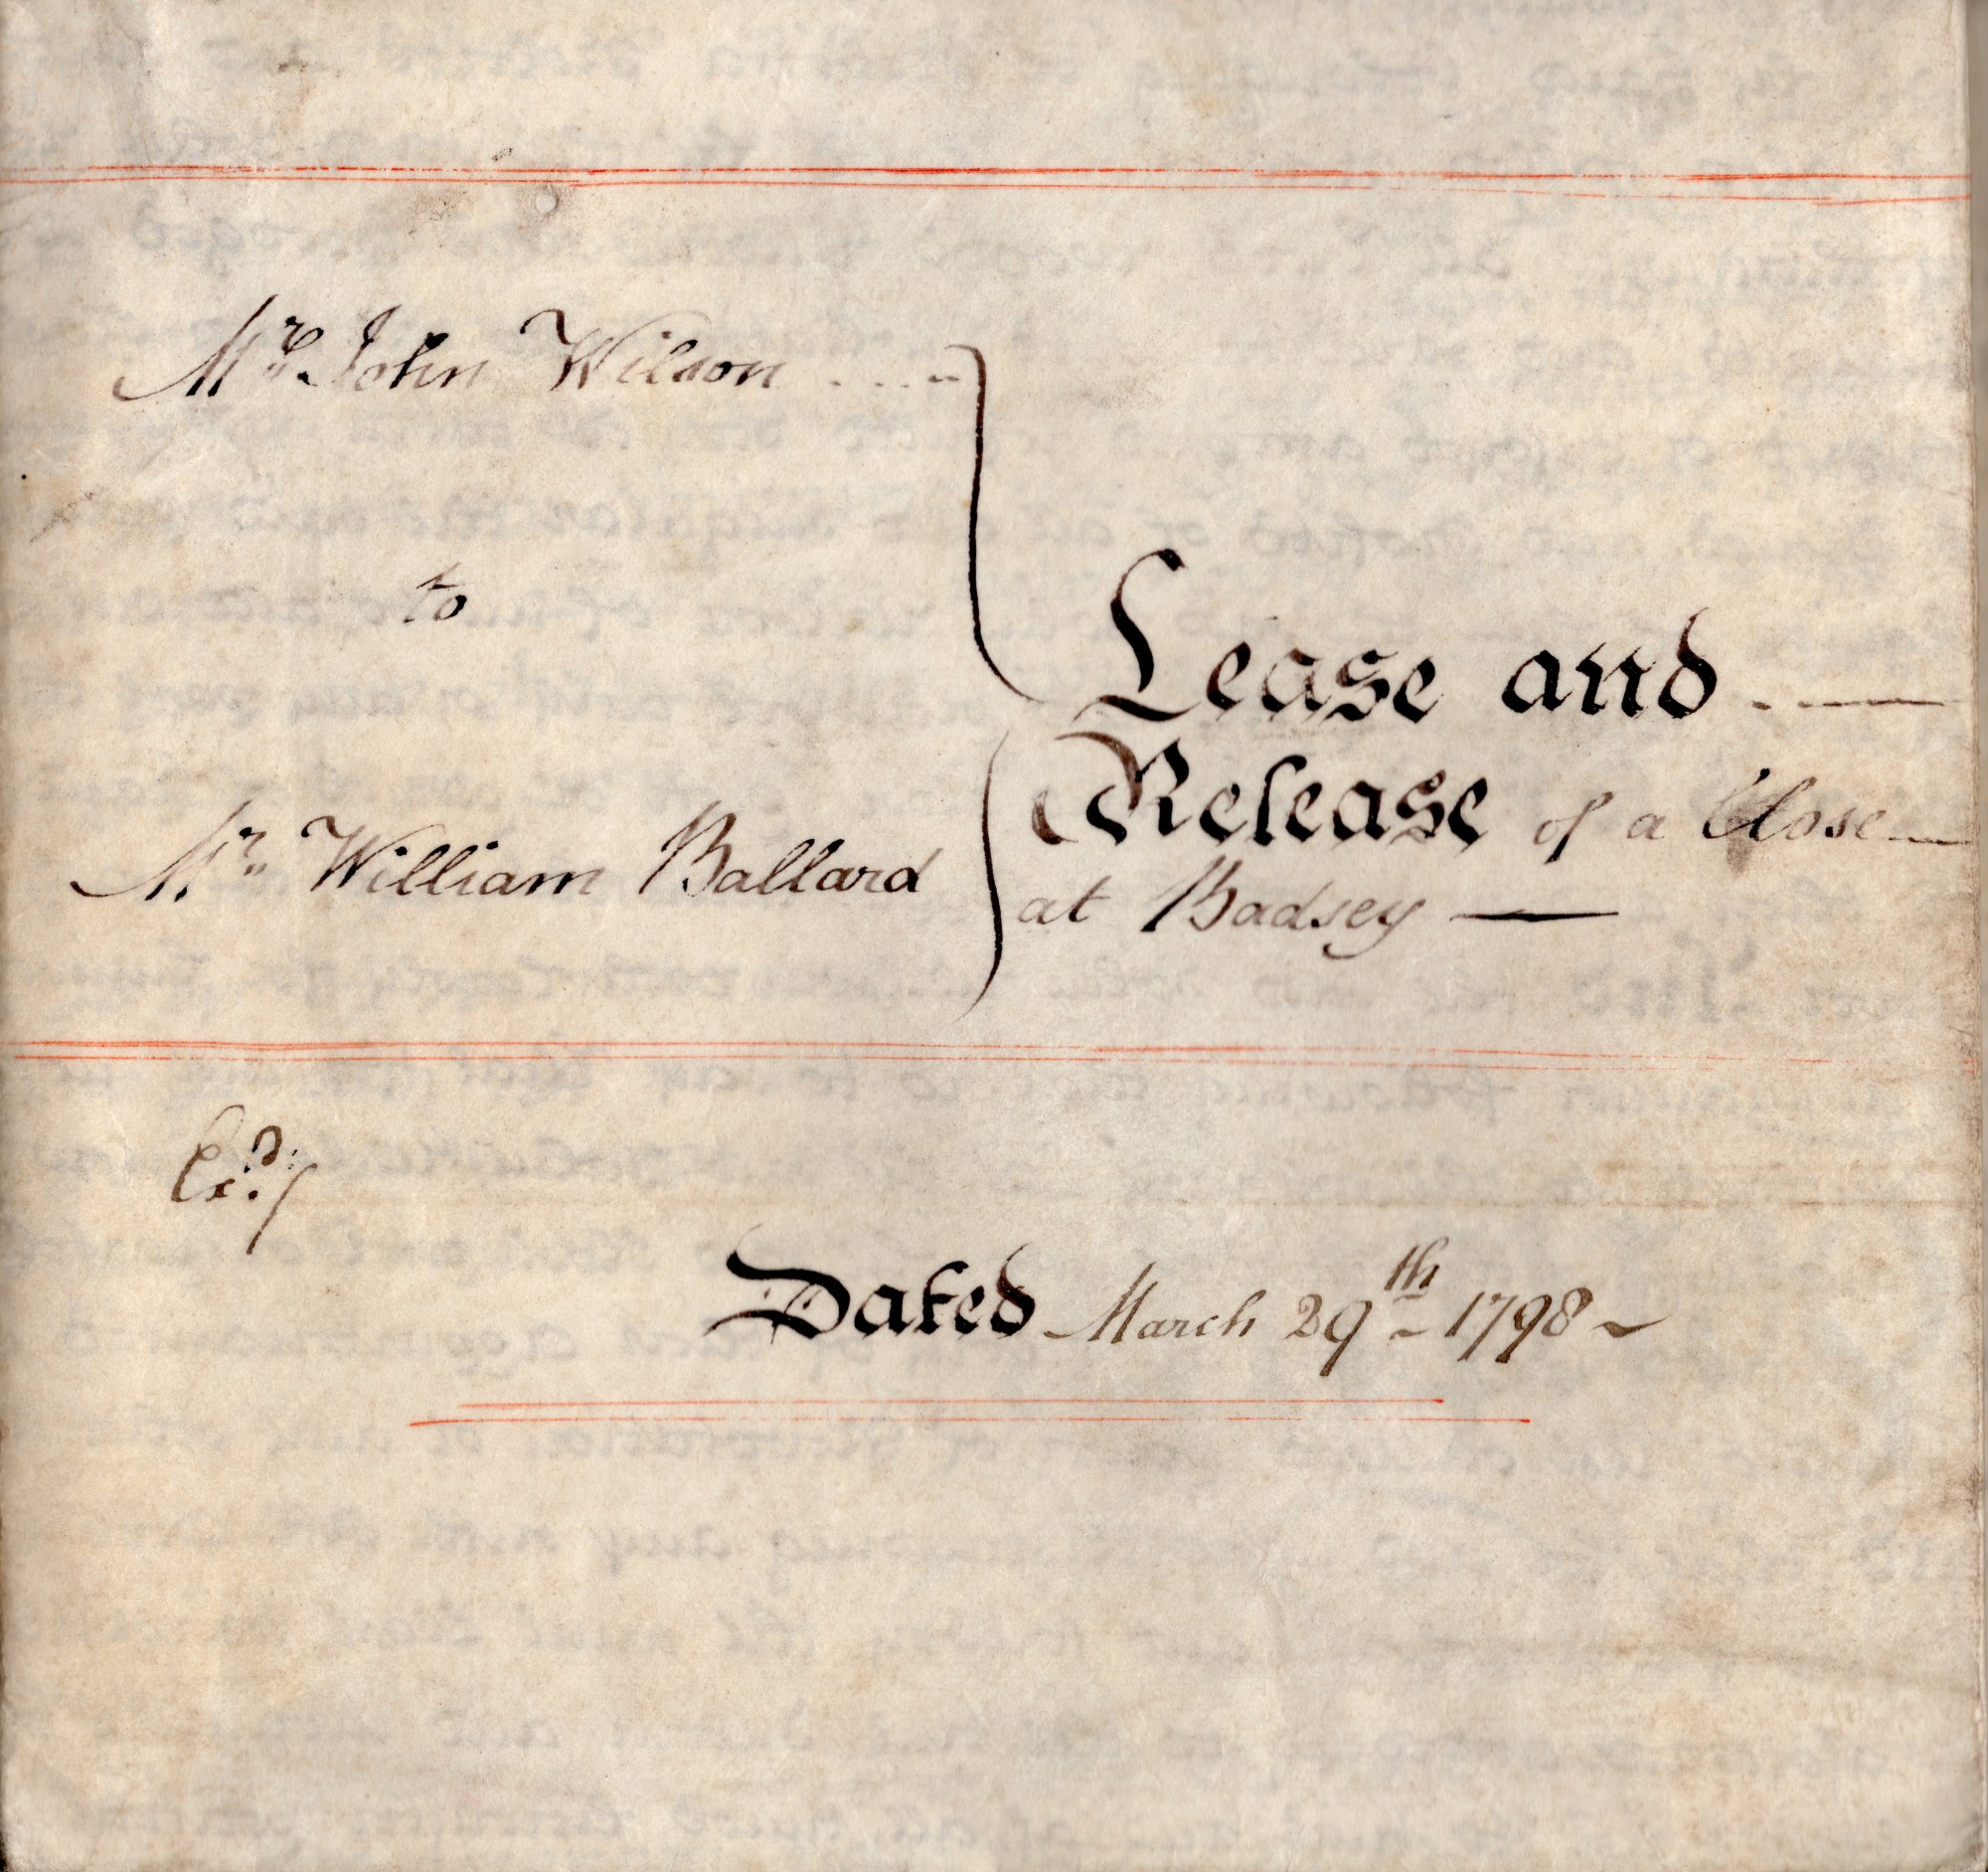 Mr. John Wilson
to
Mr. William Ballard
Lease and
Release of a Close
at Badsey
Exd.
Dated March 29th 1798